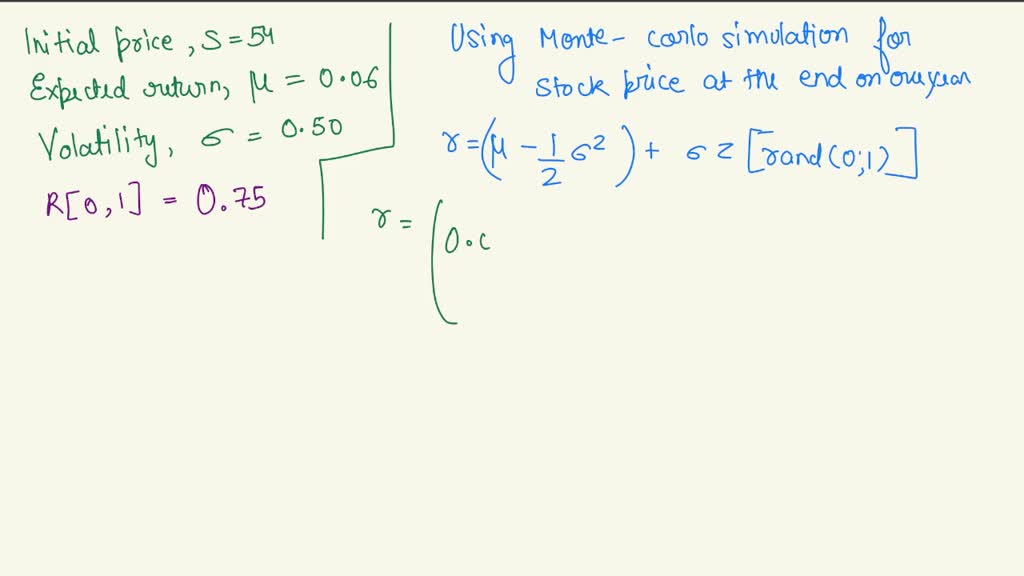 Initial price, S = 54
Expected return, μ = 0.06
Volatility, σ = 0.50
R[0,1] = 0.75
Using Monte-Carlo simulation for
stock price at the end on one year
r = (μ - 1/2 σ²) + σ z [rand(0;1)]
r = (0.0